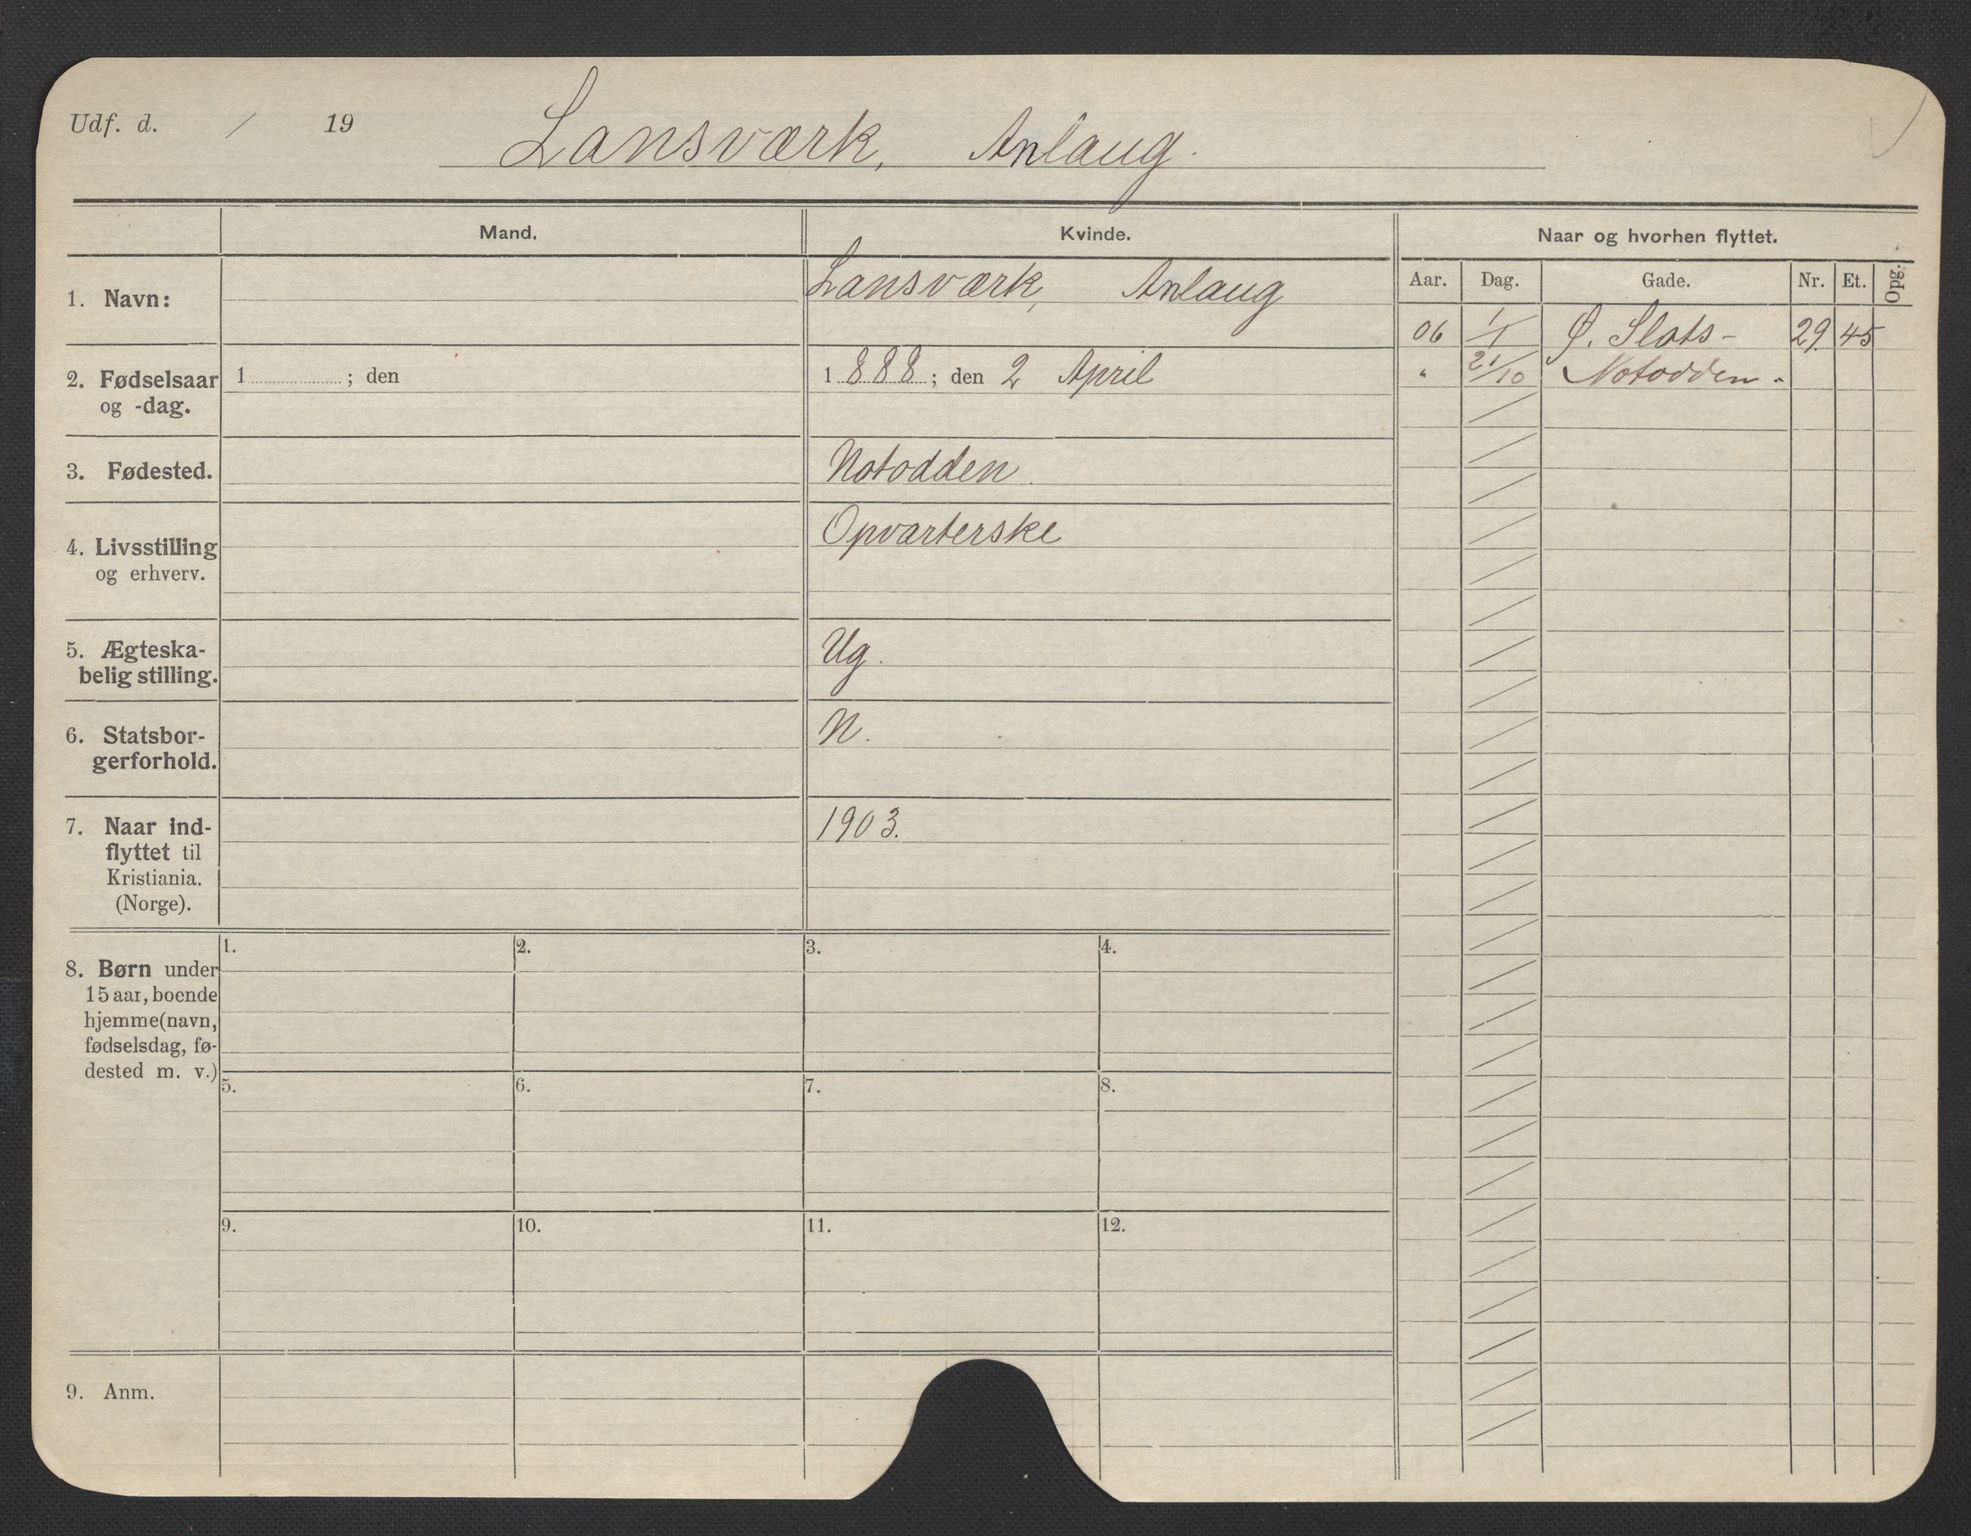 Udf. d. / 19 Lansværk, Anlaug.
Mand.
Kvinde.
Naar og hvorhen flyttet.
Aar. Dag. Gade. Nr. Et. Opg.
1. Navn: Lansværk, Anlaug
06 1/1 Ø. Slots- 29. 45
" 21/10 Notodden.
2. Fødselsaar og -dag. 1 ; den 1888; den 2 April
3. Fødested. Notodden.
4. Livsstilling og erhverv. Opvarterske
5. Ægteska-
belig stilling. Ug.
6. Statsbor-
gerforhold. N.
7. Naar ind-
flyttet til
Kristiania.
(Norge). 1903.
8. Børn under
15 aar, boende
hjemme (navn,
fødselsdag, fø-
dested m. v.)
1. 2. 3. 4.
5. 6. 7. 8.
9. 10. 11. 12.
9. Anm.